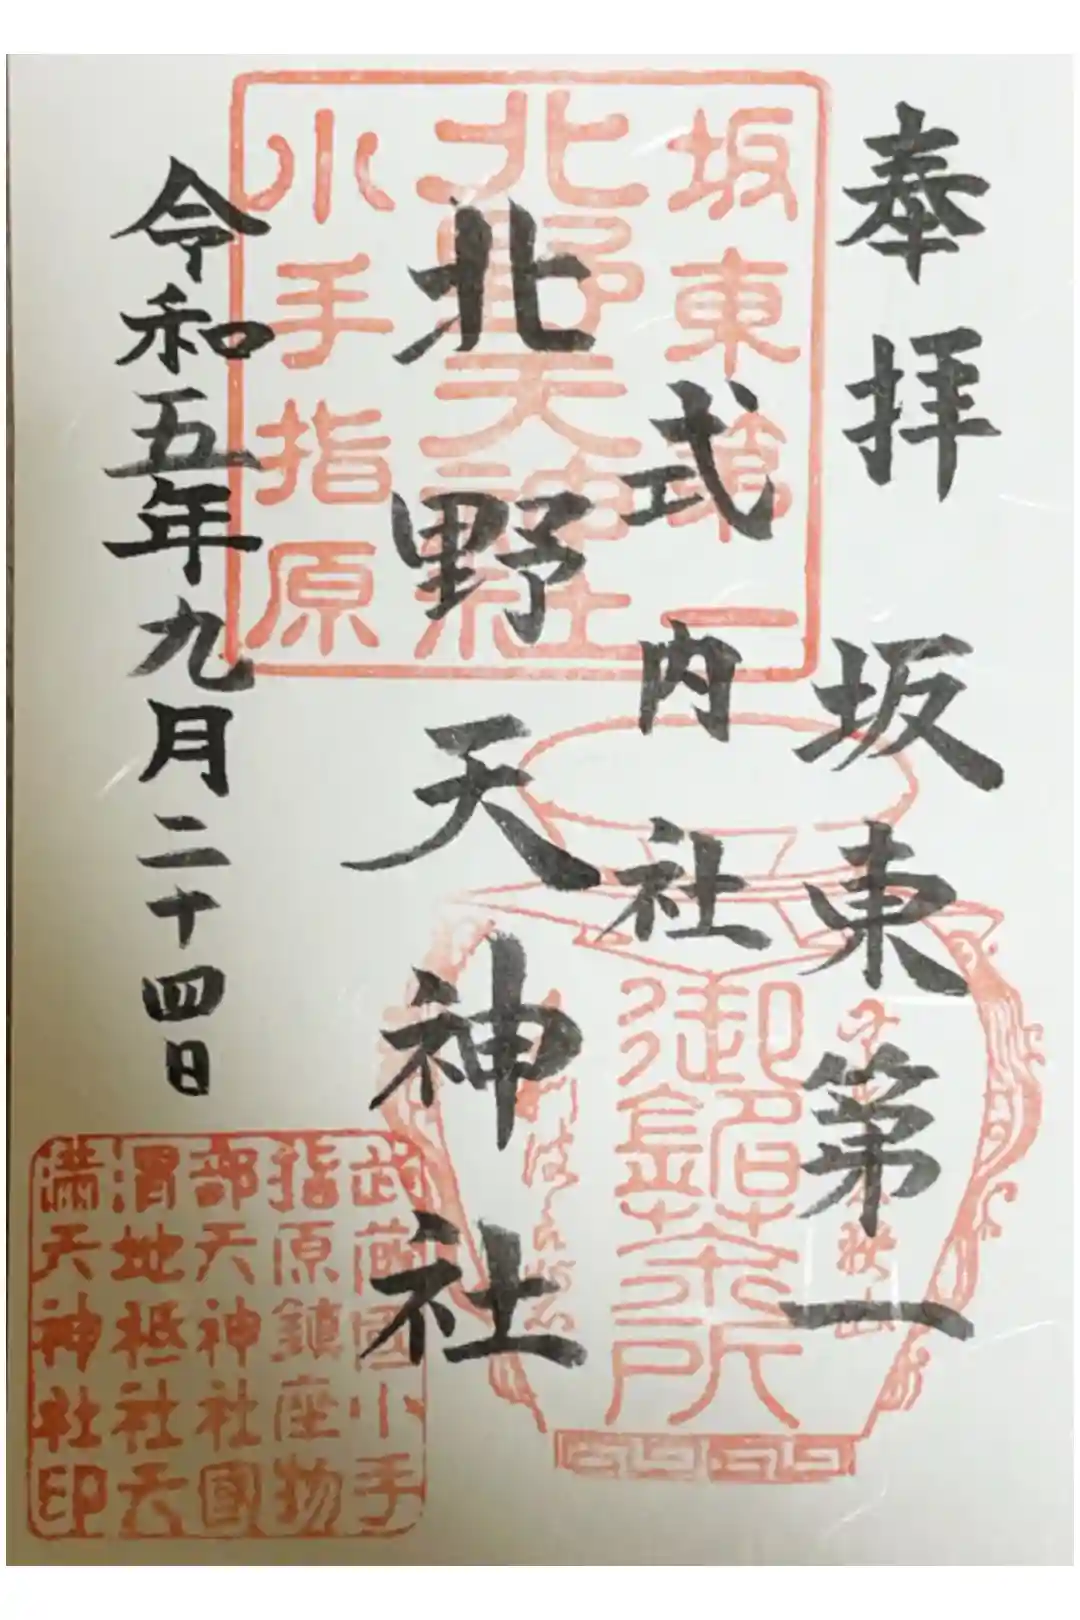 奉拝
坂東第一
式内社
北野天神社
令和五年九月二十四日
坂東第一
北野天神社
小手指原
武蔵國小手
指原鎮座物
部天神社國
渭地祇社天
満天神社印